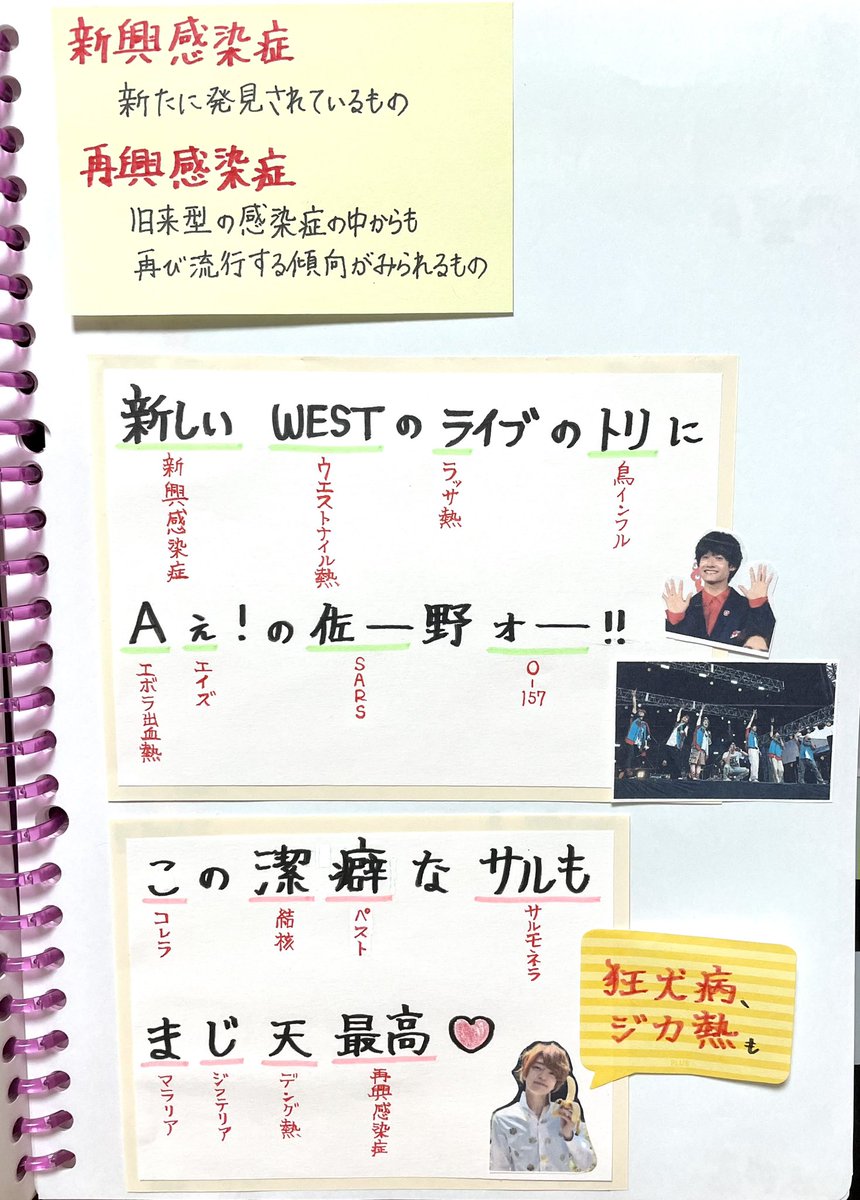 新興感染症
新たに発見されているもの
再興感染症
旧来型の感染症の中からも
再び流行する傾向がみられるもの
新しい WESTのライブのトリに
新興感染症
ウエストナイル熱
ラッサ熱
鳥インフル
Aぇ!の佐ー野ォー!!
エボラ出血熱
エイズ
SARS
O-157
この潔癖なサルも
コレラ
結核
ペスト
サルモネラ
まじ天最高♡
マラリア
ジフテリア
デング熱
再興感染症
狂犬病、
ジカ熱も